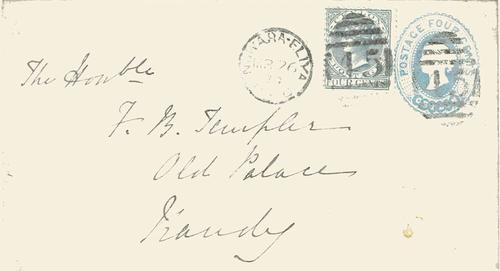 NUWARA-ELIYA
MR 26
POSTAGE FOUR CENTS
FOUR CENTS
15
The Honble
F. B. Templer
Old Palace
Kandy